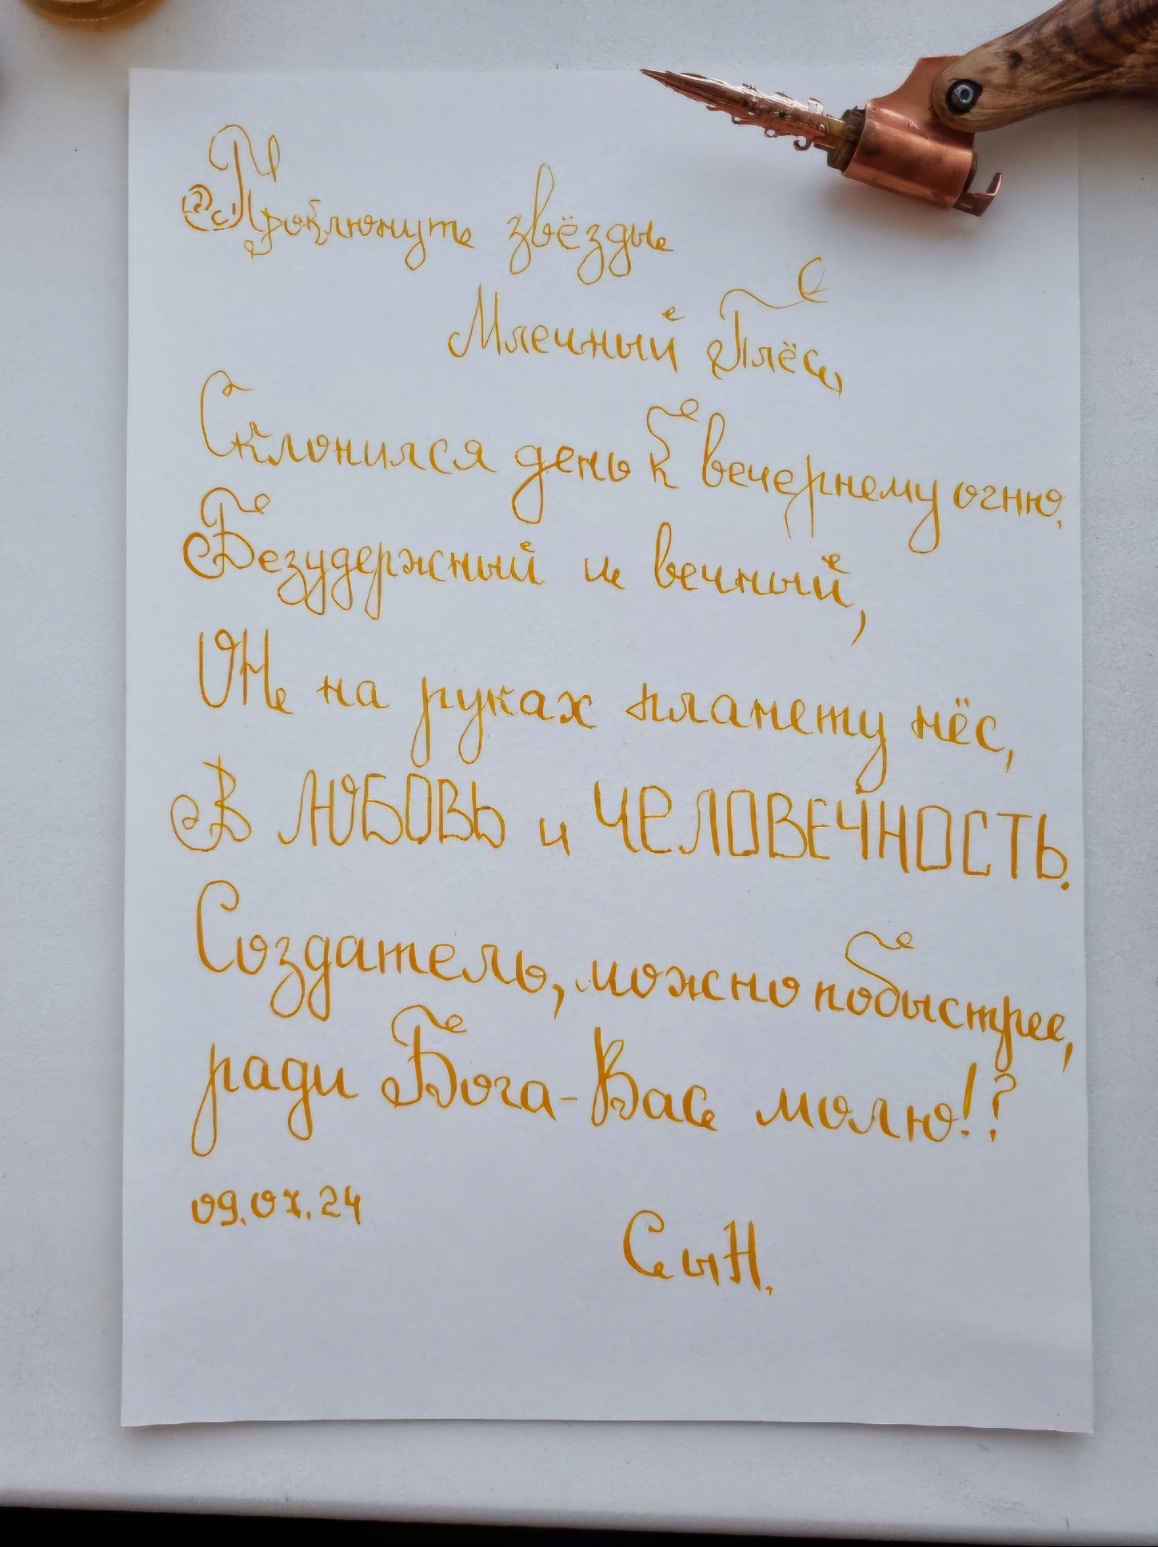 Проклюнуте звёзды
Млечный Плёс,
Склонился день к вечернему огню.
Безудержный и вечный,
Он на руках планету нёс,
В ЛЮБОВЬ и ЧЕЛОВЕЧНОСТЬ.
Создатель, можно побыстрее,
ради Бога-Вас молю!?
09.07.24
СыН.